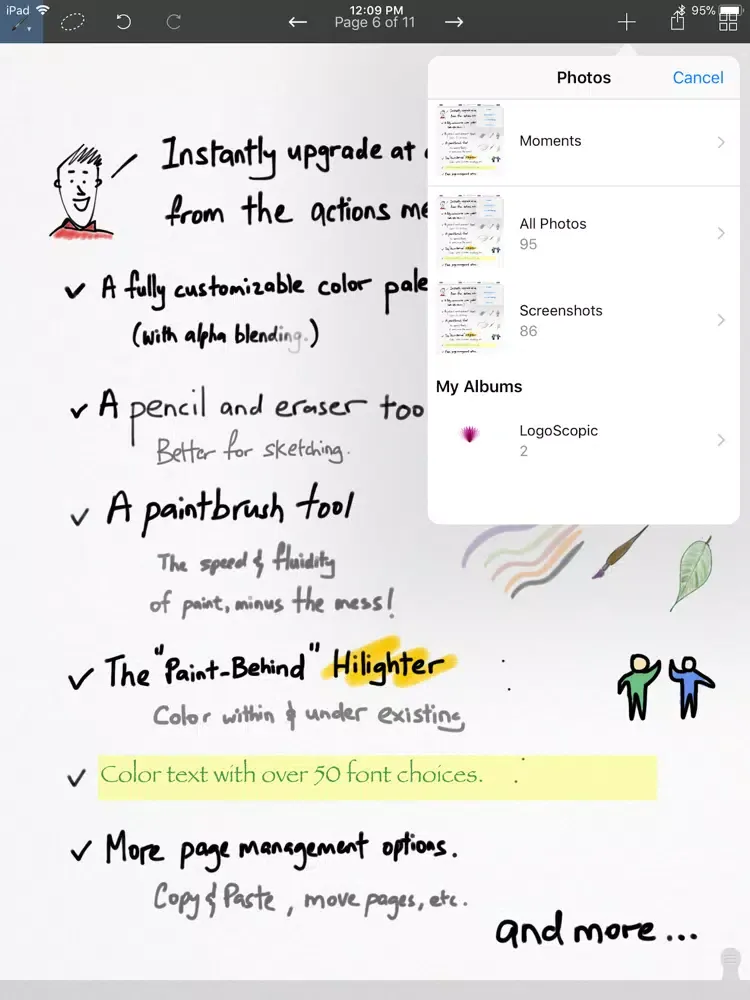 iPad
12:09 PM
95%
Page 6 of 11
Photos
Cancel
Moments
All Photos
95
Screenshots
86
My Albums
LogoScopic
2
Instantly upgrade at
from the actions me
✓ A fully customizable color pale
(with alpha blending.)
✓ A pencil and eraser too
Better for sketching.
✓ A paintbrush tool
The speed & fluidity
of paint, minus the mess!
✓ The "Paint-Behind" Hilighter
Color within & under existing
✓ Color text with over 50 font choices.
✓ More page management options.
Copy & Paste, move pages, etc.
and more...